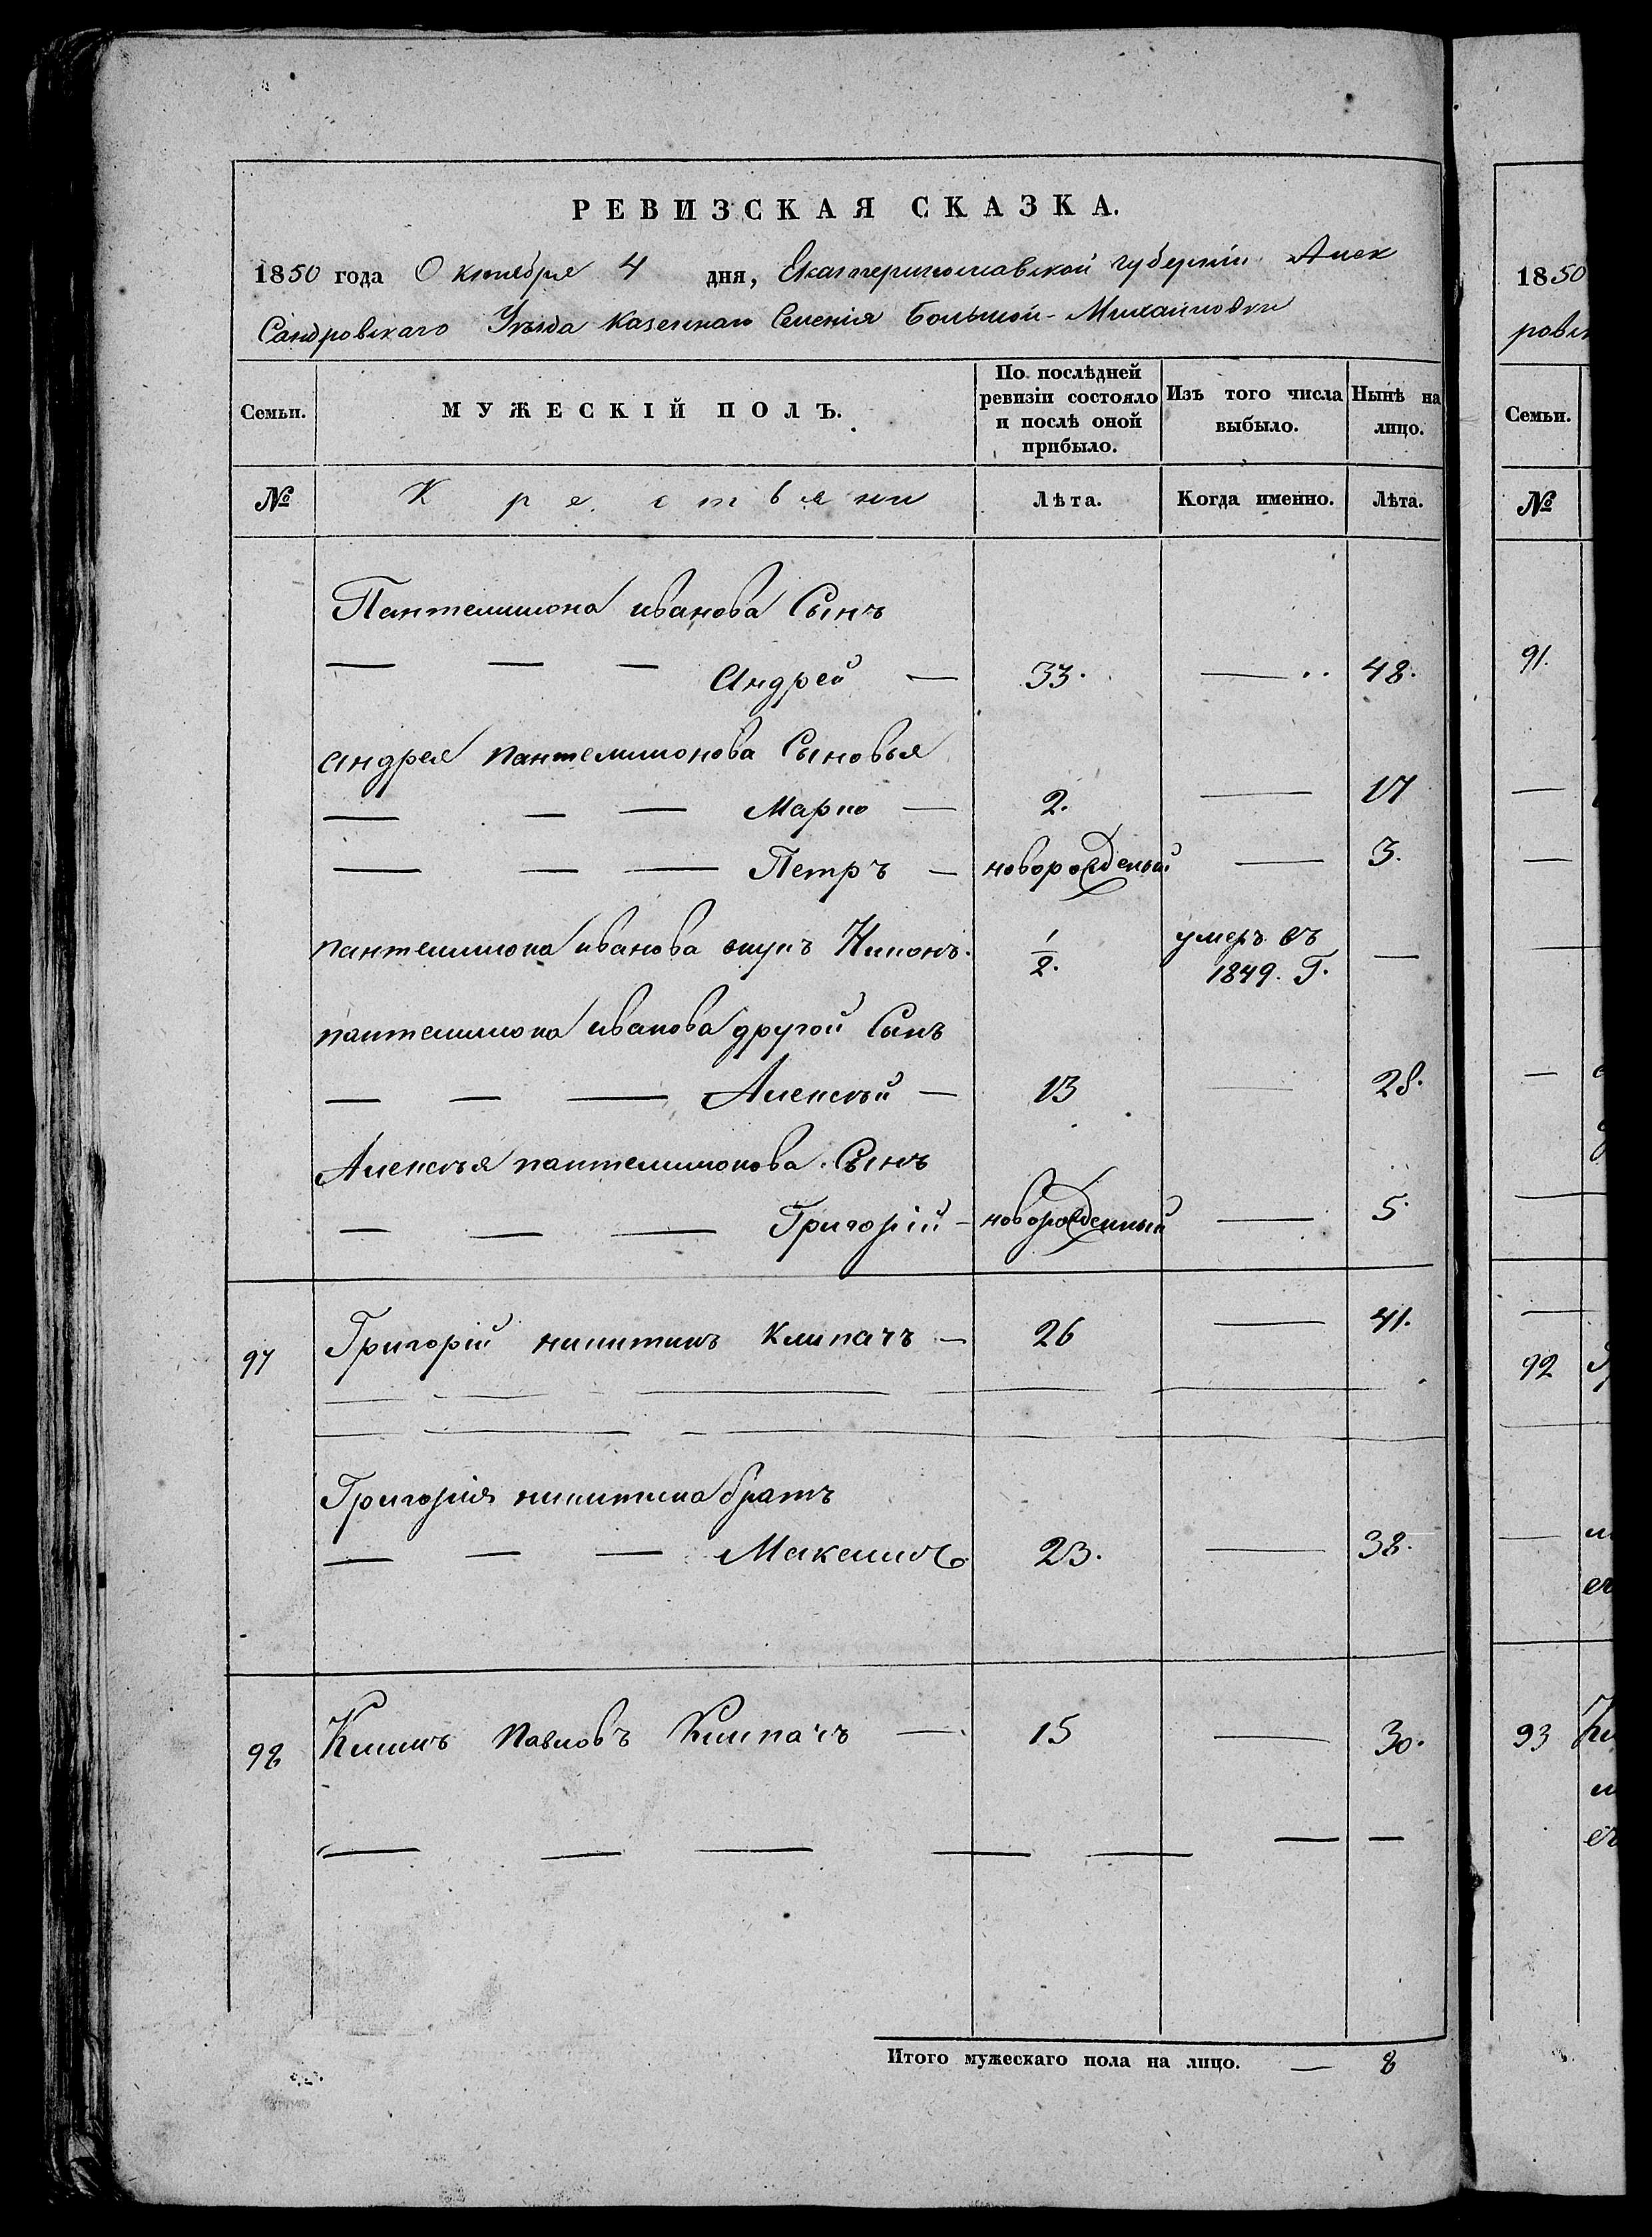 РЕВИЗСКАЯ СКАЗКА.
1850 года Октября 4 дня, Екатеринославской губерніи Алек
Сандровскаго Уѣзда Казеннаго Селенія Большой-Михайловки
Семьи.
МУЖЕСКІЙ ПОЛЪ.
По послѣдней ревизіи состояло и послѣ оной прибыло.
Изъ того числа выбыло.
Нынѣ на лицо.
№ Крестьяни Лѣта. Когда именно. Лѣта.
Пантелимона иванова Сынъ
— — — Андрей — 33. — 48.
андрея пантелимонова Сыновья
— — — Марко — 2. — 17
— — — Петръ — новорожденый — 3.
пантелимона иванова внукъ Никонъ. 1/2. умеръ въ 1849. Г. —
пантелимона иванова другой Сынъ
— — — Алексѣй — 13 — 28.
Алексѣя пантелимонова Сынъ
— — — Григорій — новорожденный — 5.
97 Григорій никитинъ Клипачъ — 26 — 41.
Григорія никитина братъ
— — — Максимъ 23. — 38.
98 Климъ Павловъ Клипачъ — 15 — 30.
Итого мужескаго пола на лицо. — 8
1850
ровск
Семьи.
№
91.
92
93